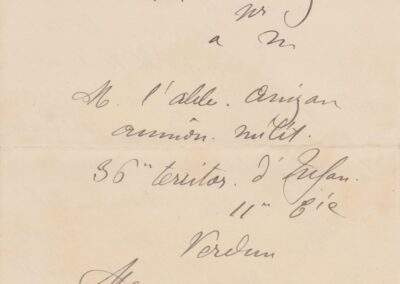 a m
M. l'abbé. Anizan
aumôn. milit.
36me territor. d'Infan.
11me Cie
Verdun